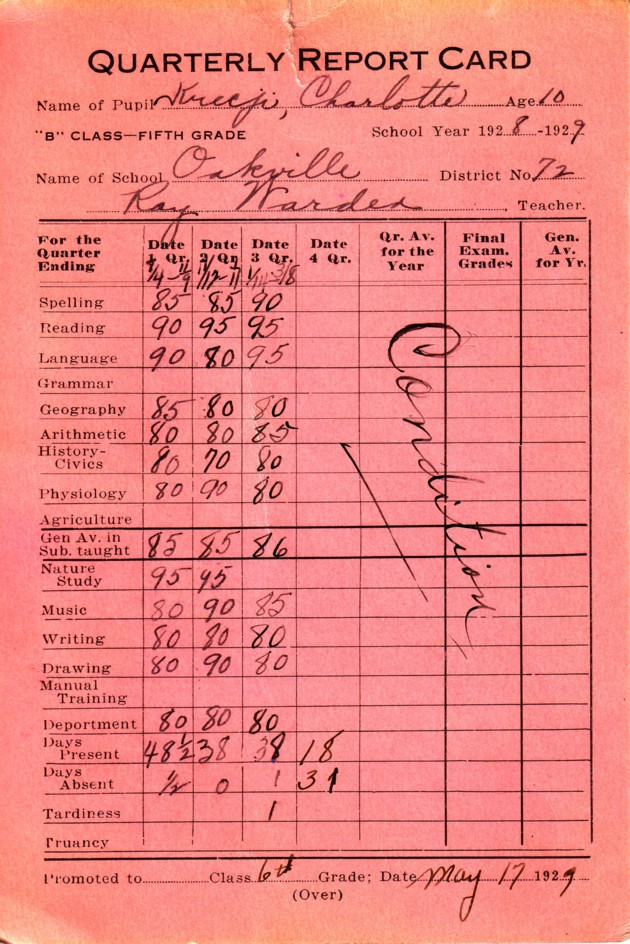 QUARTERLY REPORT CARD
Name of Pupil Krecji, Charlotte Age 10
"B" CLASS—FIFTH GRADE School Year 1928-1929
Name of School Oakville District No. 72
Ray Warden, Teacher.
For the Quarter Ending Date 1 Qr. Date 2 Qr. Date 3 Qr. Date 4 Qr. Qr. Av. for the Year Final Exam. Grades Gen. Av. for Yr.
Spelling 85 85 90
Reading 90 95 95
Language 90 80 95
Grammar
Geography 85 80 80
Arithmetic 80 80 85
History-Civics 80 70 80
Physiology 80 90 80
Agriculture
Gen Av. in Sub. taught 85 85 86
Nature Study 95 95
Music 80 90 85
Writing 80 80 80
Drawing 80 90 80
Manual Training
Deportment 80 80 80
Days Present 48 1/2 38 38 18
Days Absent 1/2 0 1 31
Tardiness 1
Truancy
Condition
Promoted to Class 6th Grade; Date May 17 1929
(Over)